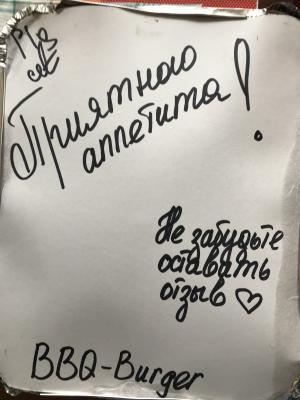 Приятного
аппетита!
Не забудьте
оставать
отзыв
BBQ-Burger